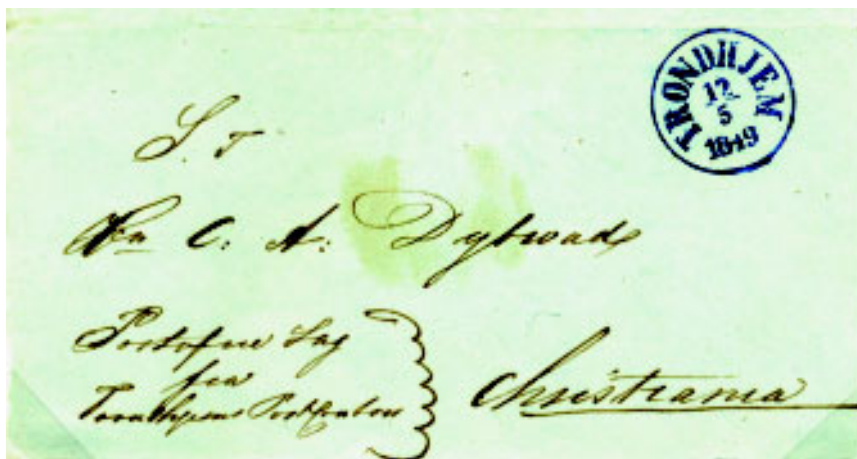 TRONDHJEM
12
5
1849
S. T
Hr C. A. Dybwad
Portofrie Sag
fra
Trondhjems Postkontor
Christiania